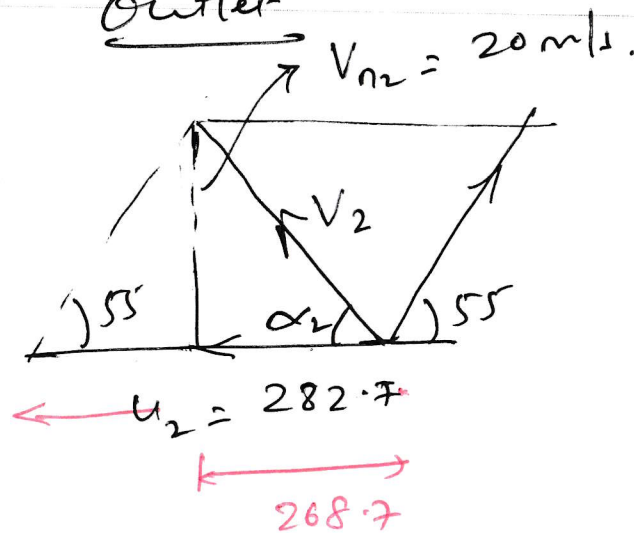 Outlet
Vn2 = 20 m/s.
V2
55
α2
55
u2 = 282.7
268.7